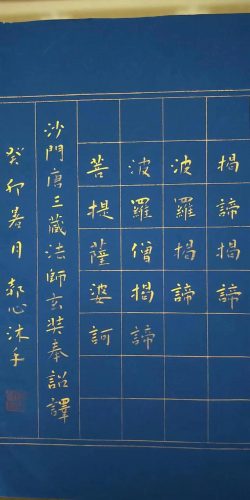 揭諦揭諦
波羅揭諦
波羅僧揭諦
菩提薩婆訶
沙門唐三藏法師玄奘奉詔譯
癸卯暑月郝心沐手